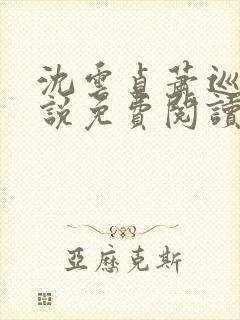 沈雲貞蕭巡
說免費閱讀
亞歷克斯